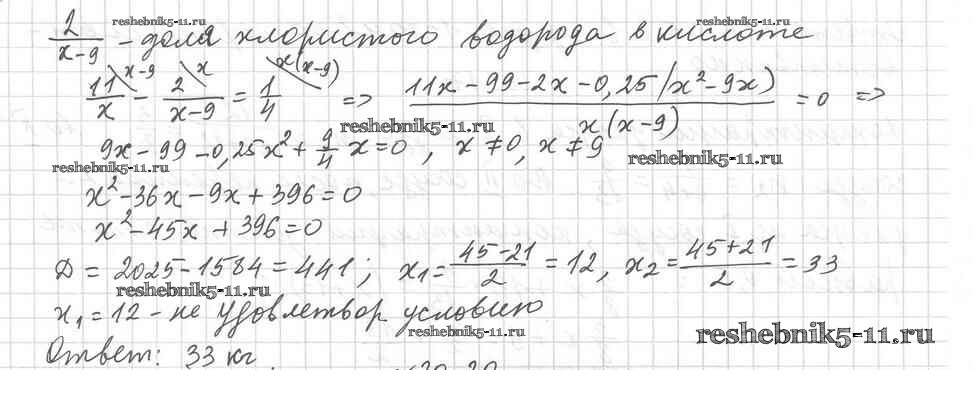 reshebnik5-11.ru
2/(x-9) - доля хлористого водорода в кислоте
11/x \x-9 - 2/(x-9) \x = 1/4 \x(x-9) => (11x - 99 - 2x - 0,25(x² - 9x))/(x(x-9)) = 0 =>
reshebnik5-11.ru
9x - 99 - 0,25x² + 9/4 x = 0, x ≠ 0, x ≠ 9
reshebnik5-11.ru
reshebnik5-11.ru
x² - 36x - 9x + 396 = 0
x² - 45x + 396 = 0
D = 2025 - 1584 = 441; x₁ = (45-21)/2 = 12, x₂ = (45+21)/2 = 33
reshebnik5-11.ru
x₁ = 12 - не удовлетвор условию
reshebnik5-11.ru
reshebnik5-11.ru
Ответ: 33 кг.